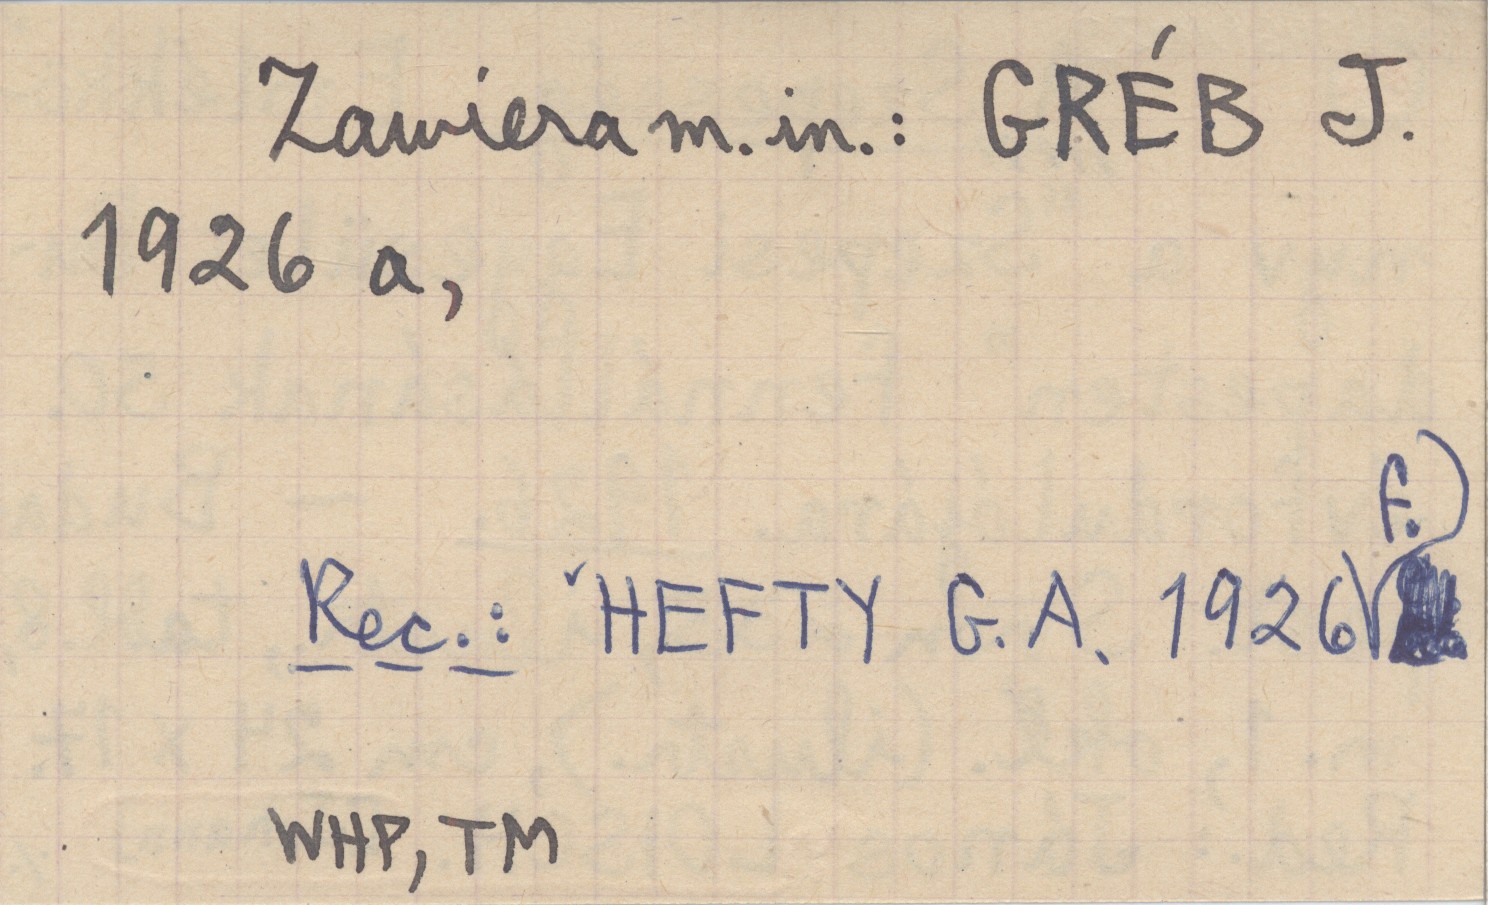 Zawiera m. in.: GRÉB J.
1926 a,
Rec.: HEFTY G. A. 1926 f.
WHP, TM